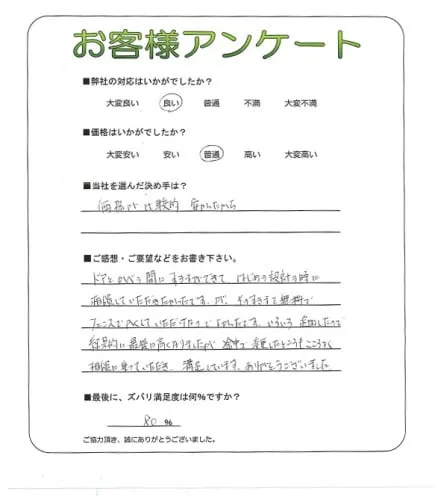 お客様アンケート
■弊社の対応はいかがでしたか?
大変良い 良い 普通 不満 大変不満
■価格はいかがでしたか?
大変安い 安い 普通 高い 大変高い
■当社を選んだ決め手は?
価格が比較的 安かったから
■ご感想・ご要望などをお書き下さい。
ドアと の間に すきまができて はじめの設計の時に
相談していただきたかったです。が、そのすきまを無料で
フェンスで していただけたので よかったです。いろいろ 追加したので
結果的に最後に高くなりましたが 途中で変更したところも こころよく
相談に乗っていただき、満足しています。ありがとうございました
■最後に、ズバリ満足度は何%ですか?
80 %
ご協力頂き、誠にありがとうございました。